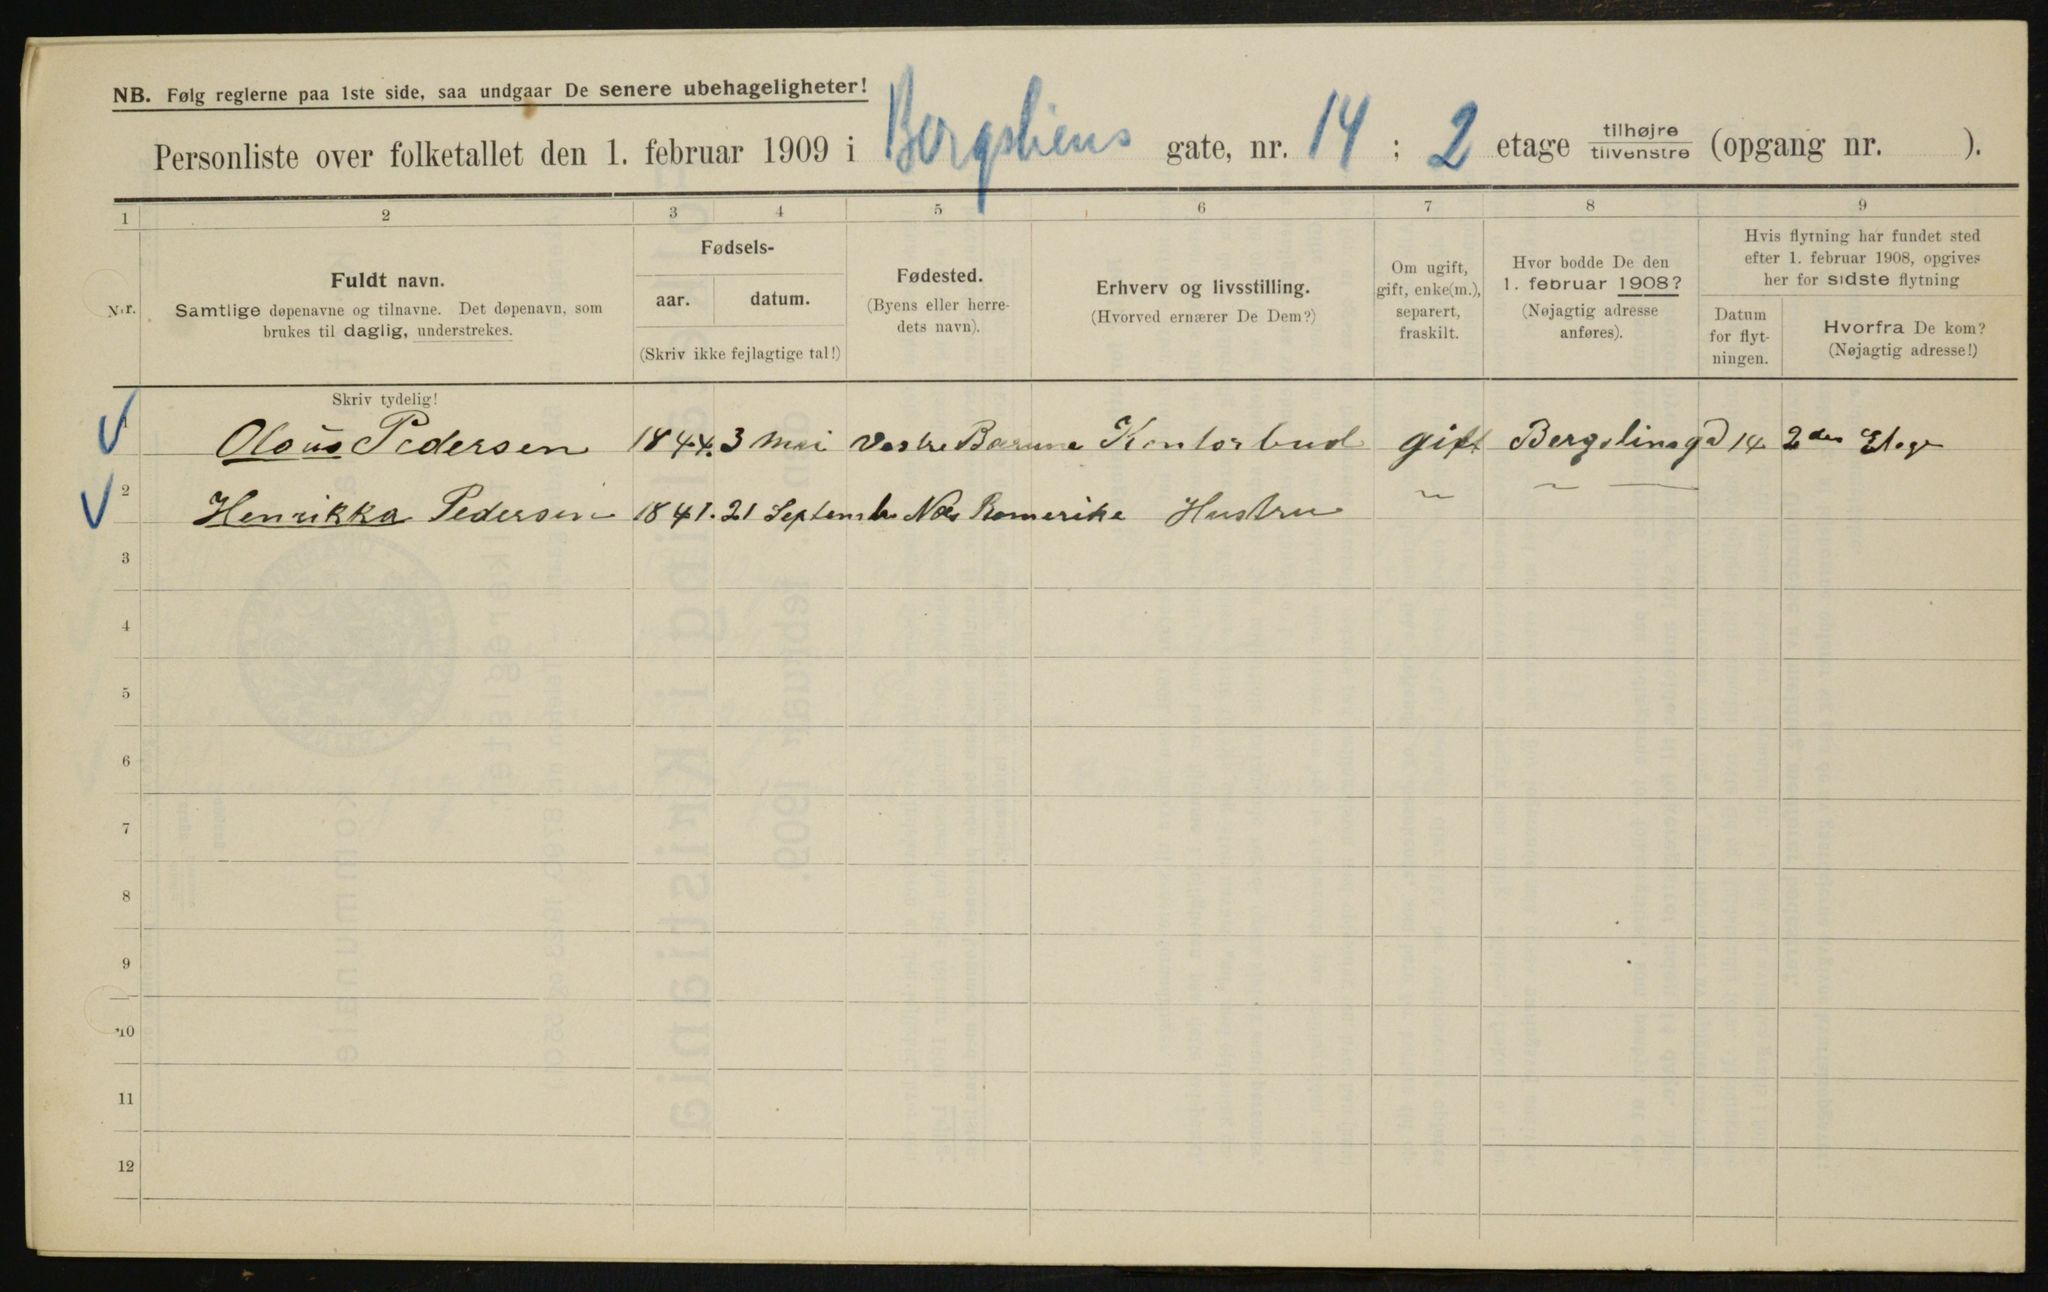 NB. Følg reglerne paa 1ste side, saa undgaar De senere ubehageligheter!
Personliste over folketallet den 1. februar 1909 i Bergsliens gate, nr. 14 ; 2 etage tilhøjre tilvenstre (opgang nr. ).
1 2 3 4 5 6 7 8 9
Nr.
Fuldt navn.
Samtlige døpenavne og tilnavne. Det døpenavn, som
brukes til daglig, understrekes.
Fødsels-
aar. datum.
(Skriv ikke fejlagtige tal!)
Fødested.
(Byens eller herre-
dets navn).
Erhverv og livsstilling.
(Hvorved ernærer De Dem?)
Om ugift,
gift, enke(m.),
separert,
fraskilt.
Hvor bodde De den
1. februar 1908?
(Nøjagtig adresse
anføres).
Hvis flytning har fundet sted
efter 1. februar 1908, opgives
her for sidste flytning
Datum
for flyt-
ningen.
Hvorfra De kom?
(Nøjagtig adresse!)
Skriv tydelig!
1 Olaus Pedersen 1844. 3 Mai Vestre Barum Kontorbud gift Bergslinsgd 14 2den Etage
2 Henrikka Pedersen 1841. 21 Septembr Næs Romerike Hustru " " —
3
4
5
6
7
8
9
10
11
12